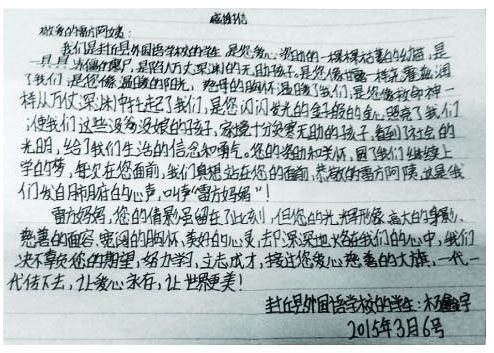 感谢信
敬爱的雷方阿姨：
我们是封丘县外国语学校的学生，是您爱心资助的一棵棵枯萎的幼苗，是
一具具冰僵的 是陷入万丈深渊的无助孩子。是您像甘露一样 滋润
了我们，是您像温暖的阳光，慈母的胸怀温暖了我们，是您像救命神一
样从万丈深渊中托起了我们，是您闪闪发光的金子般的心，照亮了我们
使我们这些没爹没娘的孩子，家境十分贫寒无助的孩子，看到了社会的
光明，给了我们生活的信念和勇气。您的资助和关怀，圆了我们继续上
学的梦，每见在您面前，我们真想站在您的面前，恭敬的雷方阿姨，这是我
们发自肺腑的心声，叫声“雷方妈妈”！
雷方妈妈，您的倩影虽留在了此刻，但您的光辉形像，高大的身影、
慈善的面容、宽阔的胸怀、美好的心灵，却深深地烙在我们的心中，我们
决不辜负您的期望，努力学习，立志成才，接过您爱心慈善的大旗，一代一
代传下去，让爱心永存，让世界更美！
封丘县外国语学校的学生：
2015年3月6号